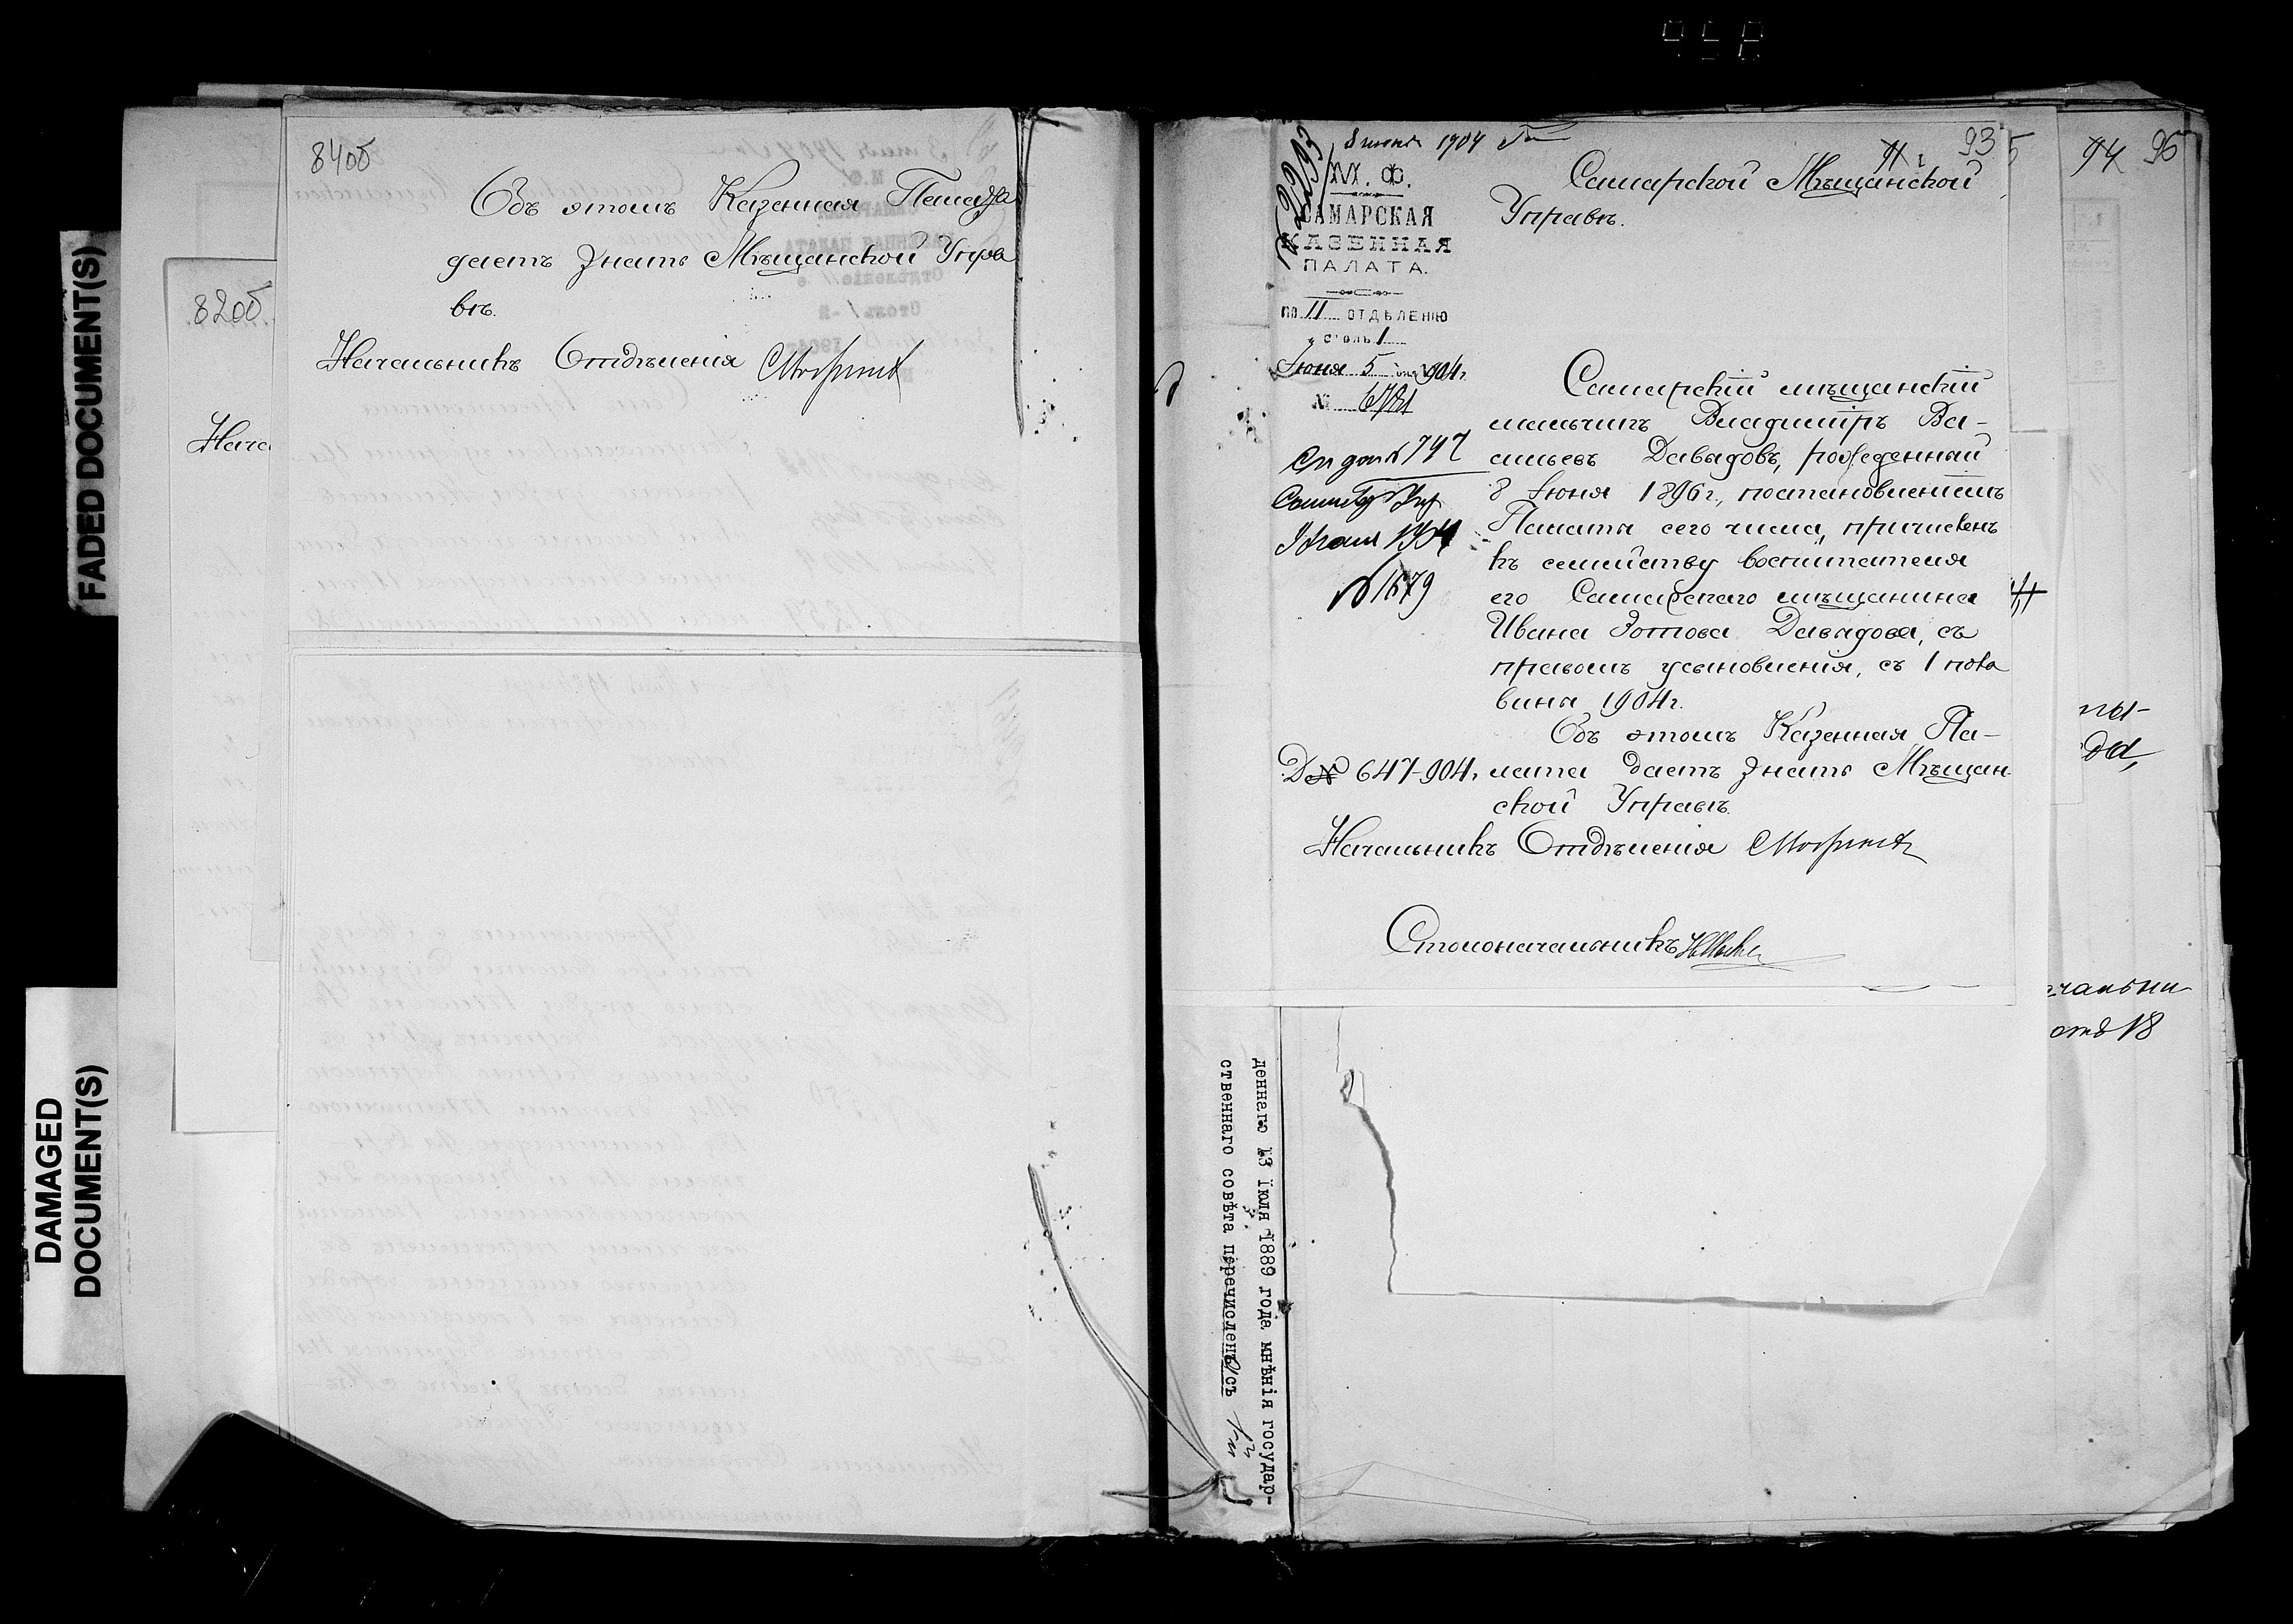 FADED DOCUMENT(S)
DAMAGED
DOCUMENT(S)
84об
Объ этомъ Казенная Палата
даетъ знать Мѣщанской Упра
вѣ.
Начальникъ Отдѣленія
82об.
Нача
8 июня 1904
№ 2293
М. Ф.
САМАРСКАЯ
КАЗЕННАЯ
ПАЛАТА.
по II отдѣленію
столъ 1
Іюня 5 дня 1904 г.
№ 6781
93
Самарской Мѣщанской
Управѣ.
Самарскій мѣщанскій
мальчикъ Владиміръ Ва-
сильевъ Давыдовъ, рожденный
8 Іюня 1896 г., постановленіемъ
Палаты сего числа, причисленъ
къ семейству воспитателя
его Самарскаго мѣщанина
Ивана Зотова Давыдова, съ
правомъ усыновленія, съ 1 поло
вины 1904 г.
Объ этомъ Казенная Па-
лата даетъ знать Мѣщан-
ской Управѣ.
1904
№ 1679
Д № 647-904 г.
Начальникъ Отдѣленія
Столоначальникъ
94 95
да,
чальни
отъ 18
деннаго 13 іюля 1889 года мнѣнія государ-
ственнаго совѣта перечисленъ съ